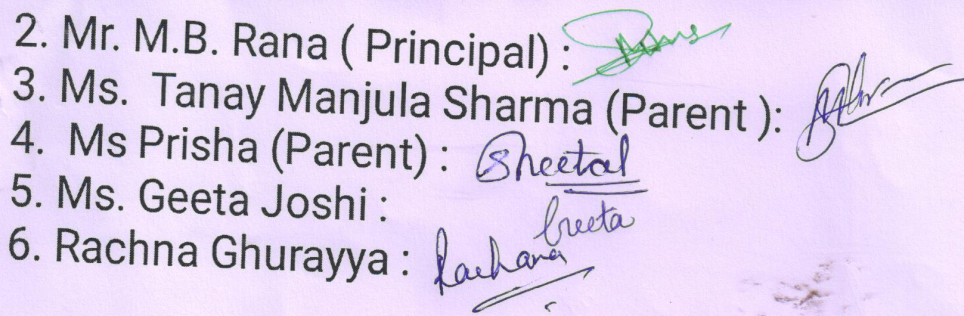 2. Mr. M.B. Rana ( Principal) :
3. Ms. Tanay Manjula Sharma (Parent ):
4. Ms Prisha (Parent) : Sheetal
5. Ms. Geeta Joshi : Geeta
6. Rachna Ghurayya : Rachana